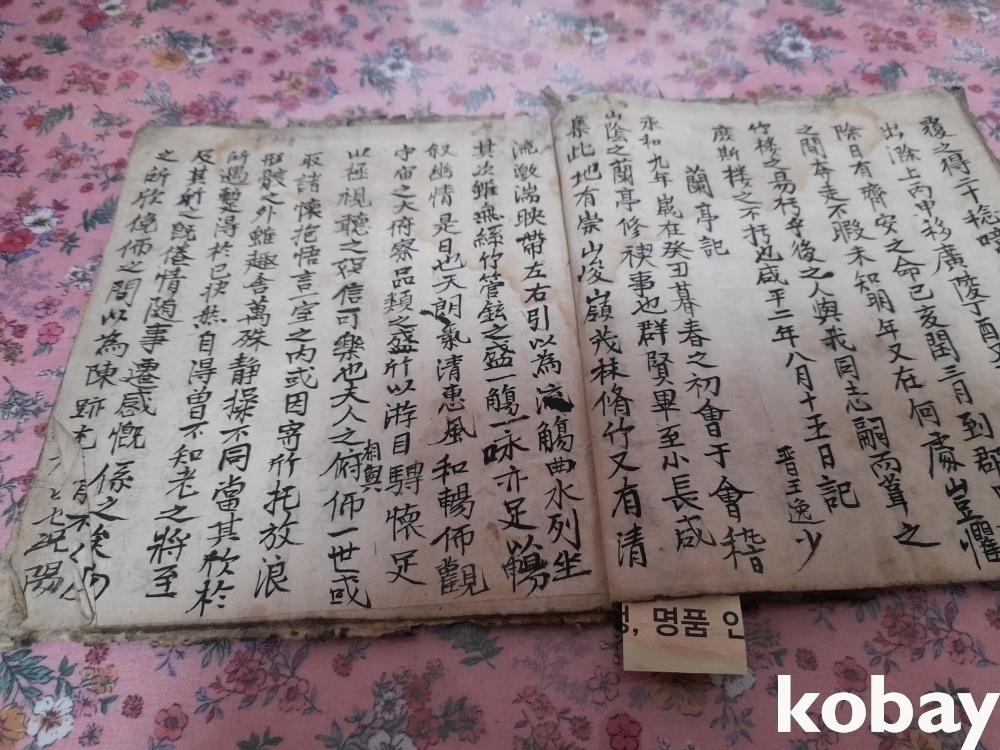 覆之得二十稔噫
出滁上丙申移廣陵丁酉又
除日有齊安之命己亥閏三月到郡
之間奔走不暇未知明年又在何處豈懼
竹樓之易朽乎後之人與我同志嗣而葺之
庶斯樓之不朽也咸平二年八月十五日記
蘭亭記 晋王逸少
永和九年歲在癸丑暮春之初會于會稽
山陰之蘭亭修禊事也群賢畢至小長咸
集此地有崇山峻嶺茂林脩竹又有清
流激湍映帶左右引以為流觴曲水列坐
其次雖無絲竹管絃之盛一觴一咏亦足以暢
叙幽情是日也天朗氣清惠風和暢仰觀
宇宙之大府察品類之盛所以游目騁懷足
以極視聽之娛信可樂也夫人之相與俯仰一世或
取諸懷抱悟言一室之內或因寄所托放浪
形骸之外雖趣舍萬殊靜操不同當其欣於
所遇暫得於已快然自得曾不知老之將至
及其所之既倦情隨事遷感慨係之矣向
之所欣俛仰之間以為陳跡尤不
, 명품 인
kobay